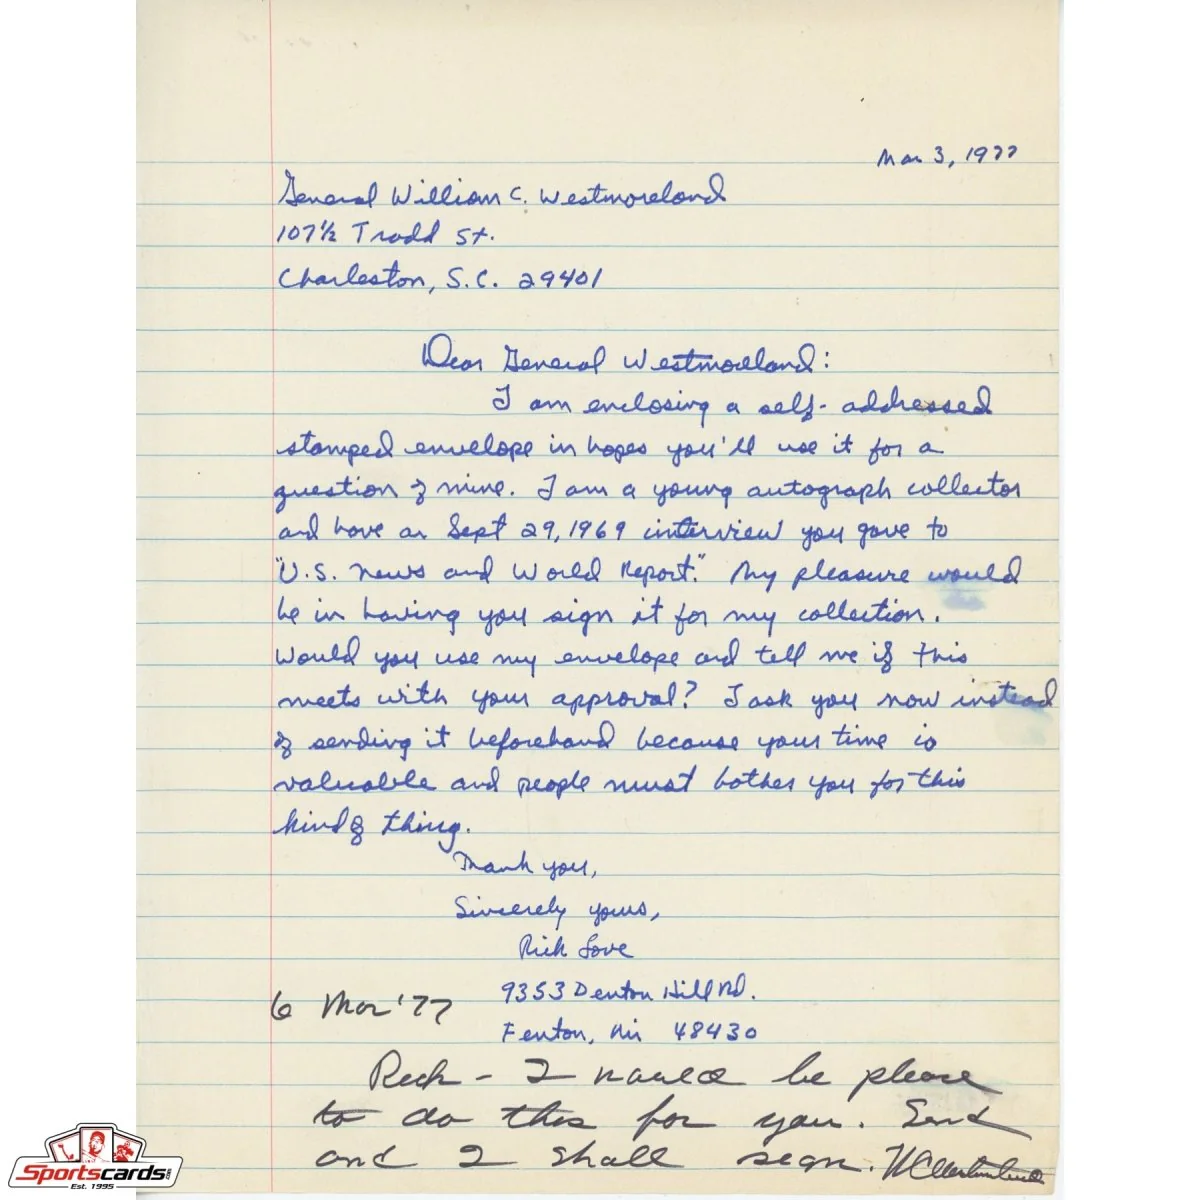 Mar 3, 1977
General William C. Westmoreland
107½ Tradd St.
Charleston, S.C. 29401
Dear General Westmoreland:
I am enclosing a self-addressed
stamped envelope in hopes you'll use it for a
question of mine. I am a young autograph collector
and have an Sept 29, 1969 interview you gave to
"U.S. News and World Report." My pleasure would
be in having you sign it for my collection.
Would you use my envelope and tell me if this
meets with your approval? I ask you now instead
of sending it beforehand because your time is
valuable and people must bother you for this
kind of thing.
Thank you,
Sincerely yours,
Rick Love
9353 Denton Hill Rd.
Fenton, Mi 48430
6 Mar '77
Rick - I would be please
to do this for you. Send
and I shall sign. WCWestmoreland
Sportscards
Est. 1995